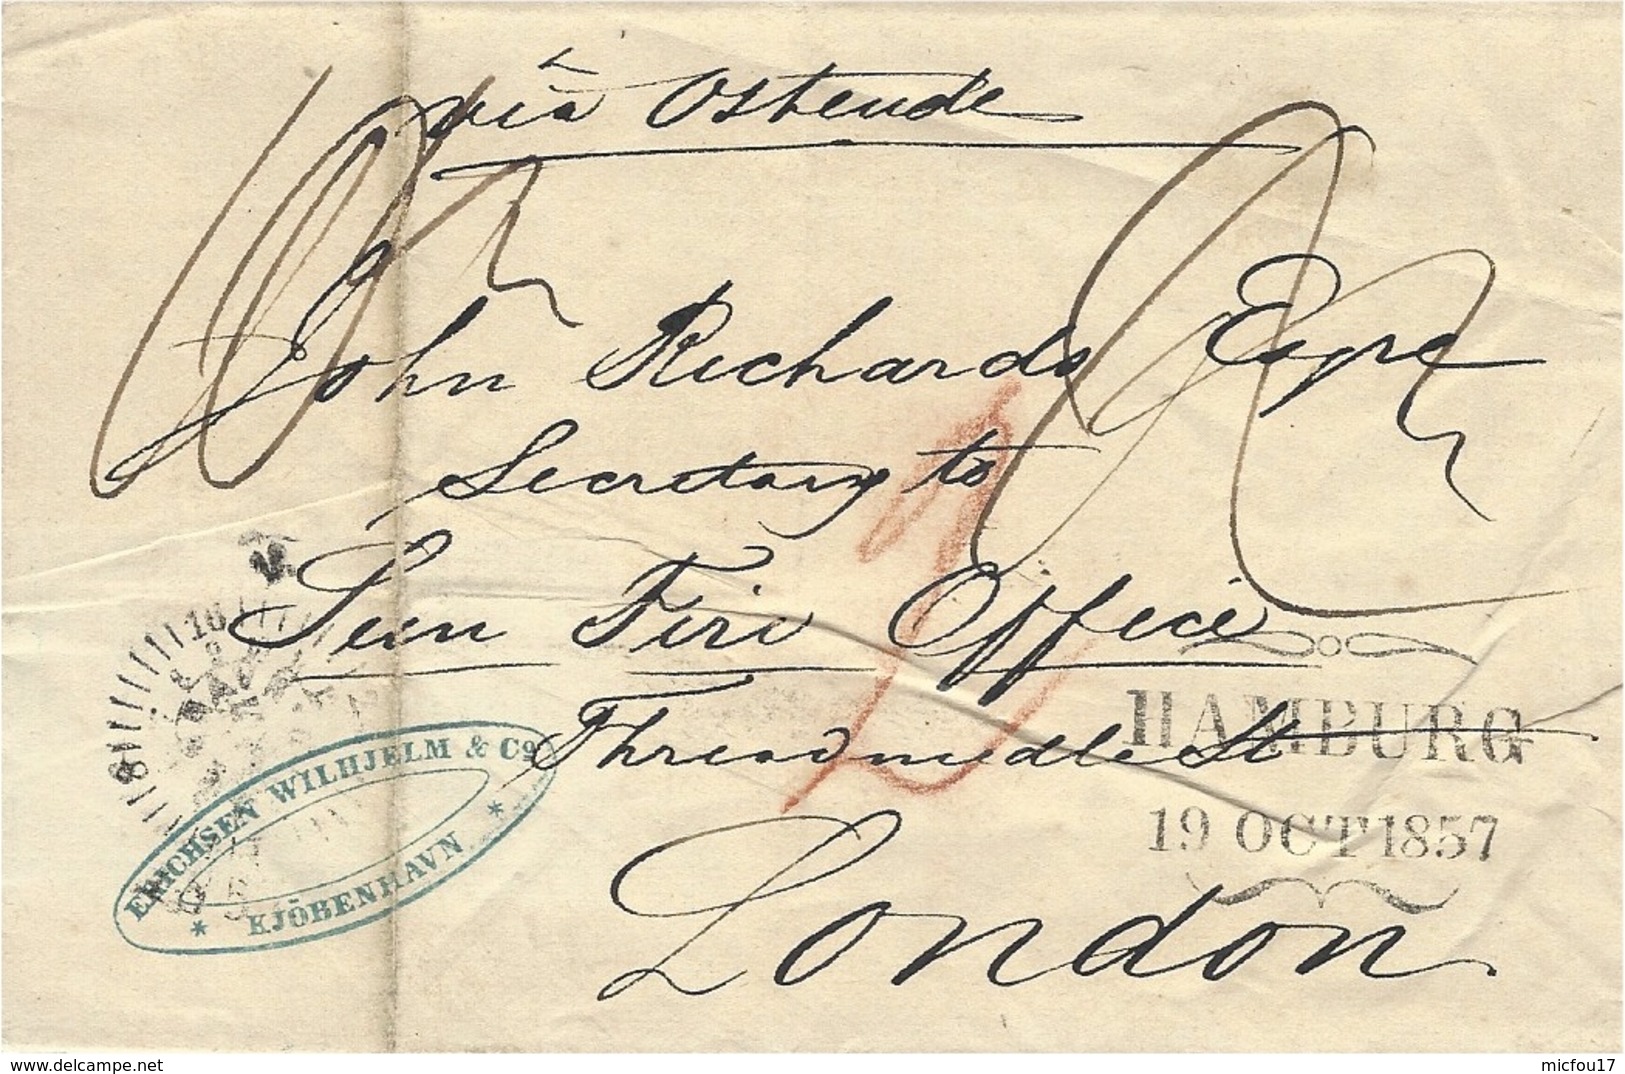 via Ostende
John Richards Esqre
Secretary to
Sun Fire Office
Threadneedle St
London
HAMBURG
19 OCT 1857
ERICHSEN WILHJELM & Co
* KJÖBENHAVN *
delcampe.net
micfou17